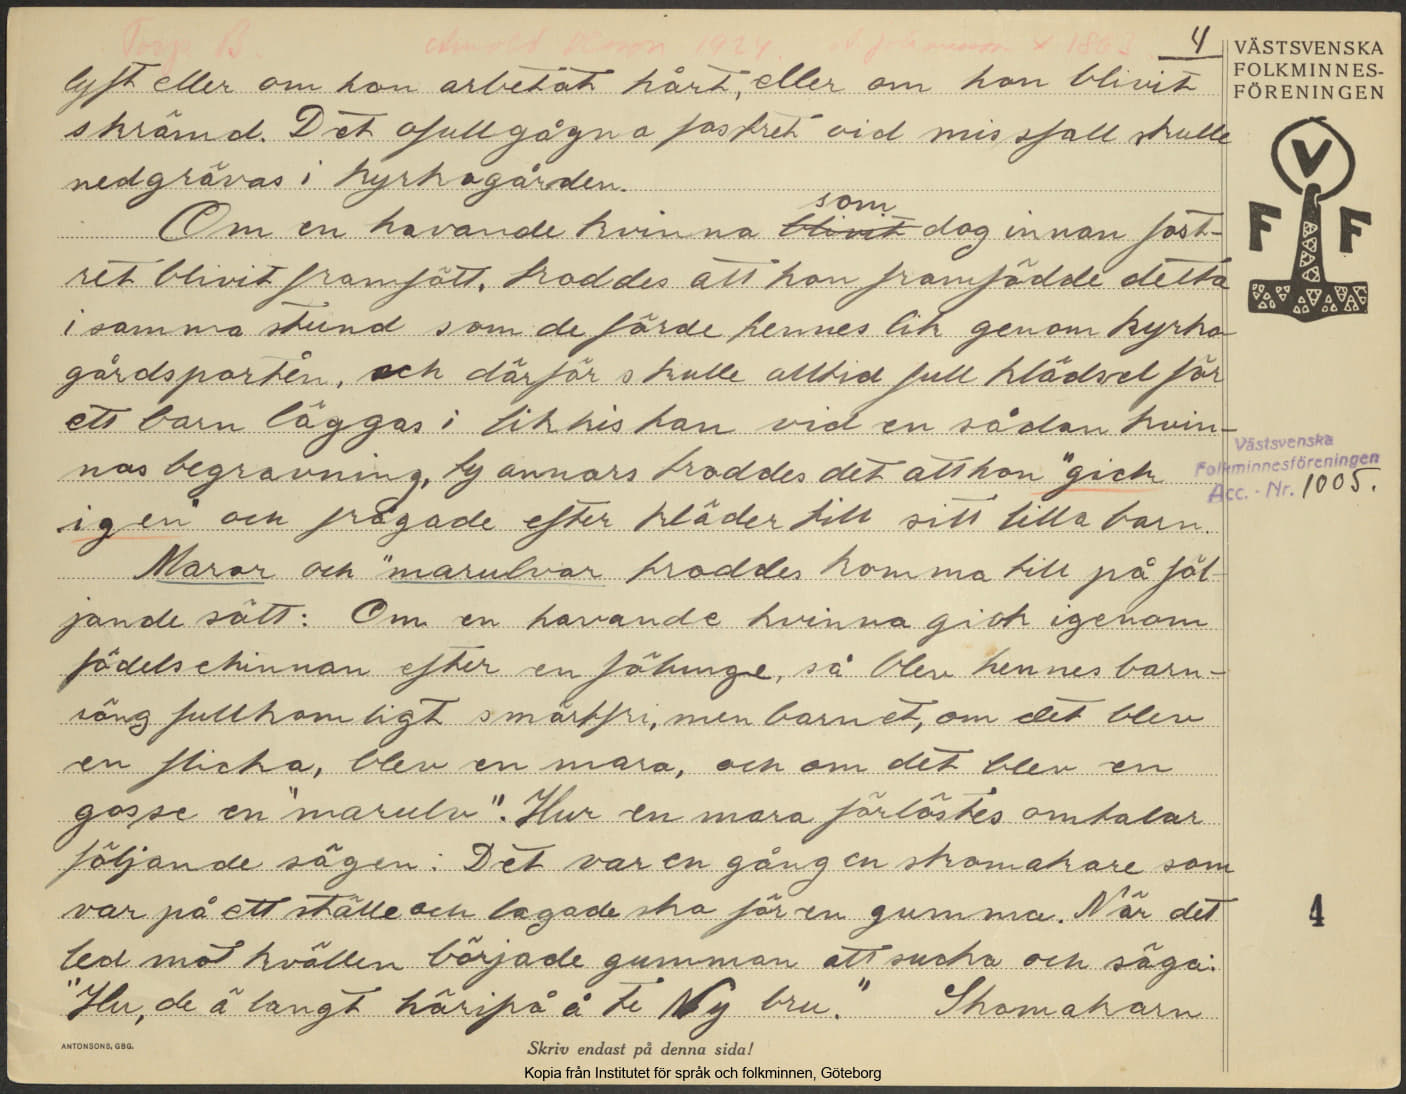 Torp B. Arnold Olsson 1924. A Johansson * 1863
4
VÄSTSVENSKA
FOLKMINNES-
FÖRENINGEN
lyft eller om hon arbetat hårt, eller om hon blivit
skrämd. Det ofullgågna fostret vid missfall skulle
nedgrävas i kyrkogården.
som
Om en havande kvinna blivit dog innan fost-
ret blivit framfött, troddes att hon framfödde detta
i samma stund som de förde hennes lik genom kyrko
gårdsporten, och därför skulle alltid full klädsel för
ett barn läggas i likkistan vid en sådan kvin-
nas begravning, ty annars troddes det att hon "gick
igen" och frågade efter kläder till sitt lilla barn.
Maror och "marulvar troddes komma till på föl-
jande sätt: Om en havande kvinna gick igenom
födelsehinnan efter en fölunge, så blev hennes barn-
säng fullkomligt smärtfri, men barnet, om det blev
en flicka, blev en mara, och om det blev en
gosse en "marulv". Hur en mara förlöstes omtalar
följande sägen: Det var en gång en skomakare som
var på ett ställe och lagade sko för en gumma. När det
led mot kvällen började gumman att sucka och säga:
"Hu, de ä langt häripå å te Ny bru." Skomakarn
V
F F
Västsvenska
Folkminnesföreningen
Acc. - Nr. 1005.
4
ANTONSONS, GBG.
Skriv endast på denna sida!
Kopia från Institutet för språk och folkminnen, Göteborg